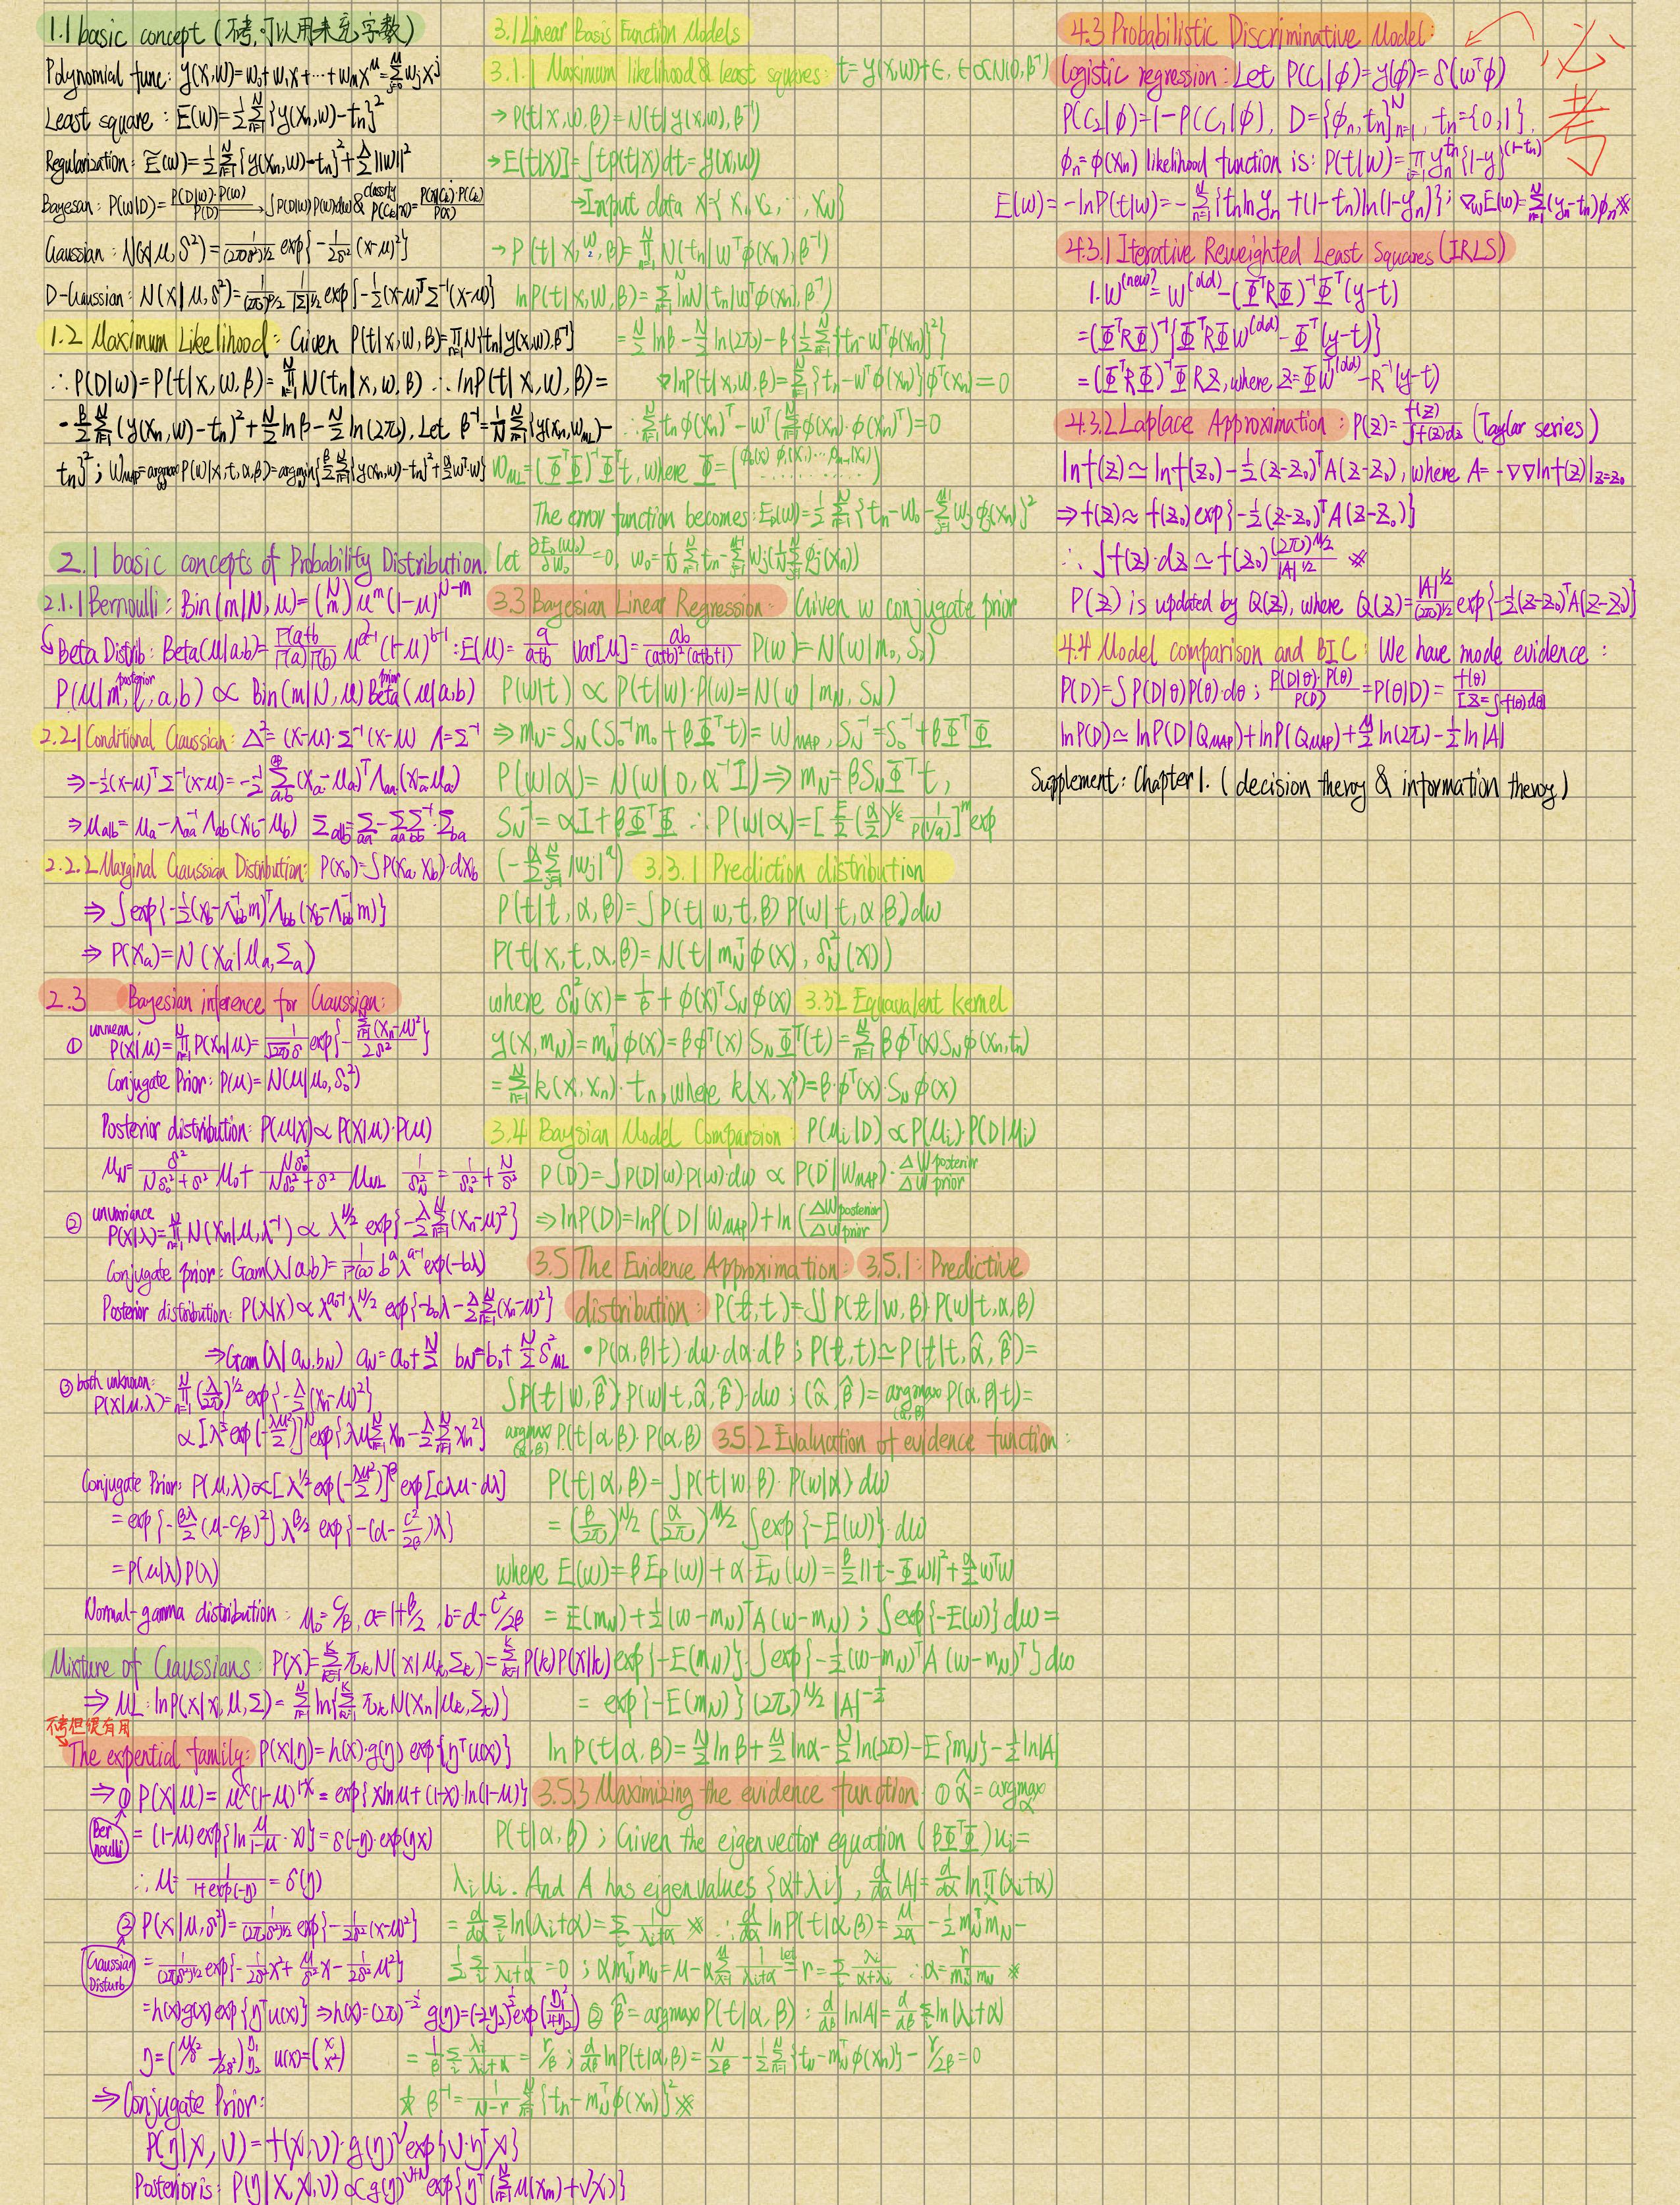 1.1 basic concept (不考,可以用来充字数)
Polynomial func: y(x,w)=w₀+w₁x+⋯+w_m x^M=Σ_{j=0}^{M} w_j x^j
Least square: E(w)=½Σ_{n=1}^{N}{y(xₙ,w)-tₙ}²
Regularization: Ẽ(w)=½Σ_{n=1}^{N}{y(xₙ,w)-tₙ}²+λ/2||w||²
Bayesan: P(w|D)=P(D|w)·P(w)/P(D) → ∫P(D|w)P(w)dw & classify P(C_k|x)=P(x|C_k)·P(C_k)/P(x)
Gaussian: N(x|μ,δ²)=1/(2πδ²)^{1/2} exp{-1/2δ² (x-μ)²}
D-Gaussian: N(x|μ,δ²)=1/(2π)^{D/2} 1/|Σ|^{1/2} exp{-½(x-μ)ᵀΣ⁻¹(x-μ)}
1.2 Maximum Likelihood: Given P(t|x,w,β)=∏_{n=1}^{N} N{tₙ|y(x,w),β⁻¹}
∴P(D|w)=P(t|x,w,β)=∏_{n=1}^{N} N(tₙ|x,w,β) ∴lnP(t|x,w,β)=
-β/2 Σ_{n=1}^{N}(y(xₙ,w)-tₙ)²+N/2 lnβ-N/2 ln(2π), Let β⁻¹=1/N Σ_{n=1}^{N}{y(xₙ,w_ML)-
tₙ}²; w_MAP=argmax P(w|x,t,α,β)=argmin{β/2 Σ_{n=1}^{N}{y(xₙ,w)-tₙ}²+α/2 wᵀw}
2.1 basic concepts of Probability Distribution.
2.1.1 Bernoulli: Bin(m|N,μ)=(N m) μ^m (1-μ)^{N-m}
Beta Distrib: Beta(μ|a,b)=Γ(a+b)/Γ(a)Γ(b) μ^{a-1}(1-μ)^{b-1}: E(μ)=a/(a+b) Var[μ]=ab/(a+b)²(a+b+1)
P(μ|m,l,a,b) posterior ∝ Bin(m|N,μ) Beta(μ|a,b) prior
2.2.1 Conditional Gaussian: Δ²=(x-μ)·Σ⁻¹(x-μ) Λ=Σ⁻¹
⇒-½(x-μ)ᵀΣ⁻¹(x-μ)=-½Σ_{a,b}(x_a-μ_a)ᵀΛ_aa(x_a-μ_a)
⇒μ_{a|b}=μ_a-Λ_aa⁻¹Λ_ab(x_b-μ_b) Σ_{a|b}=Σ_aa-ΣΣ_bb⁻¹·Σ_ba
2.2.2 Marginal Gaussian Distribution: P(x_a)=∫P(x_a,x_b)·dx_b
⇒∫exp{-½(x_b-Λ_bb⁻¹m)ᵀΛ_bb(x_b-Λ_bb⁻¹m)}
⇒P(x_a)=N(x_a|μ_a,Σ_a)
2.3 Bayesian inference for Gaussian:
① unmean P(x|μ)=∏_{n=1}^{N}P(xₙ|μ)=1/√(2π)δ exp{-Σ_{n=1}^{N}(xₙ-μ)²/2δ²}
Conjugate Prior: P(μ)=N(μ|μ₀,δ₀²)
Posterior distribution: P(μ|x)∝P(x|μ)·P(μ)
μ_N=δ²/(Nδ₀²+δ²) μ₀+Nδ₀²/(Nδ₀²+δ²) μ_ML 1/δ_N²=1/δ₀²+N/δ²
② unvariance P(x|λ)=∏_{n=1}^{N}N(xₙ|μ,λ⁻¹)∝λ^{N/2} exp{-λ/2 Σ_{n=1}^{N}(xₙ-μ)²}
Conjugate prior: Gam(λ|a,b)=1/Γ(a) b^a λ^{a-1} exp(-bλ)
Posterior distribution: P(λ|x)∝λ^{a₀-1}λ^{N/2} exp{-b₀λ-λ/2 Σ_{n=1}^{N}(xₙ-μ)²}
⇒Gam(λ|a_N,b_N) a_N=a₀+N/2 b_N=b₀+N/2 δ²_ML
③ both unknown: P(x|μ,λ)=∏_{n=1}^{N}(λ/2π)^{1/2} exp{-λ/2(xₙ-μ)²}
∝[λ^{1/2}exp(-λμ²/2)]^N exp{λμΣ_{n=1}^{N}xₙ-λ/2 Σ_{n=1}^{N}xₙ²}
Conjugate Prior: P(μ,λ)∝[λ^{1/2}exp(-λμ²/2)]^β exp[cλμ-dλ]
=exp{-βλ/2(μ-c/β)²}λ^{β/2} exp{-(d-c²/2β)λ}
=P(μ|λ)P(λ)
Normal-gamma distribution: μ₀=c/β, a=1+β/2, b=d-c²/2β
Mixture of Gaussians: P(x)=Σ_{k=1}^{K}π_k N(x|μ_k,Σ_k)=Σ_{k=1}^{K}P(k)P(x|k)
⇒ML: lnP(x|π,μ,Σ)=Σ_{n=1}^{N}ln{Σ_{k=1}^{K}π_k N(xₙ|μ_k,Σ_k)}
不考但很有用
The expential family: P(x|η)=h(x)·g(η) exp{ηᵀu(x)}
⇒① P(x|μ)=μ^x(1-μ)^{1-x}=exp{xlnμ+(1-x)·ln(1-μ)}
Bernoulli =(1-μ)exp{ln μ/(1-μ)·x}=δ(-η)·exp(ηx)
∴μ=1/(1+exp(-η))=δ(η)
② P(x|μ,δ²)=1/(2πδ²)^{1/2} exp{-1/2δ²(x-μ)²}
Gaussian Disturb =1/(2πδ²)^{1/2} exp{-1/2δ² x²+μ/δ² x-1/2δ² μ²}
=h(x)·g(x)exp{ηᵀu(x)} ⇒h(x)=(2π)^{-1/2} g(η)=(-2η₂)^{1/2}exp(η₁²/4η₂)
η=(μ/δ² -1/2δ²) η₁ η₂ u(x)=(x x²)
⇒Conjugate Prior:
P(η|χ,ν)=f(χ,ν)·g(η)^ν exp{ν·ηᵀχ}
Posterior is: P(η|X,χ,ν)∝g(η)^{ν+N}exp{ηᵀ(Σ_{n=1}^{N}u(xₙ)+νχ)}
3.1 Linear Basis Function Models
3.1.1 Maximum likelihood & least squares: t=y(x,w)+ϵ, ϵ∝N(0,β⁻¹)
→P(t|x,w,β)=N(t|y(x,w),β⁻¹)
→E(t|x)]=∫tp(t|x)dt=y(x,w)
→Input data X={x₁,x₂,⋯,x_N}
→P(t|x,w,β)=∏_{n=1}^{N}N(tₙ|wᵀϕ(xₙ),β⁻¹)
lnP(t|x,w,β)=Σ_{n=1}^{N}lnN(tₙ|wᵀϕ(xₙ),β⁻¹)
=N/2 lnβ-N/2 ln(2π)-β{½Σ_{n=1}^{N}{tₙ-wᵀϕ(xₙ)}²}
∇lnP(t|x,w,β)=Σ_{n=1}^{N}{tₙ-wᵀϕ(xₙ)}ϕᵀ(xₙ)=0
∴Σ_{n=1}^{N}tₙϕ(xₙ)ᵀ-wᵀ(Σ_{n=1}^{N}ϕ(xₙ)·ϕ(xₙ)ᵀ)=0
w_ML=(ΦᵀΦ)⁻¹Φᵀt, where Φ=(ϕ₀(x₁) ϕ₁(x₁)⋯ϕ_{M-1}(x₁) ⋯⋯)
The error function becomes: E_D(w)=½Σ_{n=1}^{N}{tₙ-w₀-Σ_{j=1}^{M-1}w_jϕ_j(xₙ)}²
let ∂E_D(w₀)/∂w₀=0, w₀=1/N Σ_{n=1}^{N}tₙ-Σ_{j=1}^{M-1}w_j(1/N Σ_{n=1}^{N}ϕ_j(xₙ))
3.3 Bayesian Linear Regression: Given w conjugate prior
P(w)=N(w|m₀,S₀)
P(w|t)∝P(t|w)·P(w)=N(w|m_N,S_N)
⇒m_N=S_N(S₀⁻¹m₀+βΦᵀt)=W_MAP, S_N⁻¹=S₀⁻¹+βΦᵀΦ
P(w|α)=N(w|0,α⁻¹I)⇒m_N=βS_NΦᵀt,
S_N⁻¹=αI+βΦᵀΦ ∴P(w|α)=[q/2(α/2)^{1/q} 1/Γ(1/q)]^M exp
(-α/2 Σ_{j=1}^{M}|w_j|^q) 3.3.1 Prediction distribution
P(t|t,α,β)=∫P(t|w,t,β)P(w|t,α,β)dw
P(t|x,t,α,β)=N(t|m_Nᵀϕ(x),δ_N²(x))
where δ_N²(x)=1/β+ϕ(x)ᵀS_Nϕ(x) 3.3.2 Equavalent kernel
y(x,m_N)=m_Nᵀϕ(x)=βϕᵀ(x)S_NΦᵀ(t)=Σ_{n=1}^{N}βϕᵀ(x)S_Nϕ(xₙ,tₙ)
=Σ_{n=1}^{N}k(x,xₙ)·tₙ, where k(x,x')=β·ϕᵀ(x)·S_Nϕ(x)
3.4 Baysian Model Comparsion: P(M_i|D)∝P(M_i)·P(D|M_i)
P(D)=∫P(D|w)·P(w)·dw∝P(D|W_MAP)·ΔW posterior/ΔW prior
⇒lnP(D)=lnP(D|W_MAP)+ln(ΔW posterior/ΔW prior)
3.5 The Evidence Approximation: 3.5.1: Predictive
distribution: P(t,t)=∬P(t|w,β)P(w|t,α,β)
•P(α,β|t)·dw·dα·dβ; P(t,t)≃P(t|t,α̂,β̂)=
∫P(t|w,β̂)P(w|t,α̂,β̂)·dw; (α̂,β̂)=argmax_{(α,β)}P(α,β|t)=
argmax_{(α,β)}P(t|α,β)·P(α,β) 3.5.2 Evaluation of evidence function:
P(t|α,β)=∫P(t|w,β)·P(w|α)dw
=(β/2π)^{N/2}(α/2π)^{M/2}∫exp{-E(w)}·dw
where E(w)=βE_D(w)+α·E_N(w)=β/2||t-Φw||²+α/2 wᵀw
=E(m_N)+½(w-m_N)ᵀA(w-m_N); ∫exp{-E(w)}dw=
exp{-E(m_N)}·∫exp{-½(w-m_N)ᵀA(w-m_N)ᵀ}dw
=exp{-E(m_N)}(2π)^{N/2}|A|^{-½}
lnP(t|α,β)=N/2 lnβ+M/2 lnα-N/2 ln(2π)-E{m_N}-½ln|A|
3.5.3 Maximizing the evidence function ① α̂=argmax_α
P(t|α,β); Given the eigenvector equation (βΦᵀΦ)u_i=
λ_iu_i. And A has eigenvalues {α+λ_i}, d/dα|A|=d/dα ln∏(λ_i+α)
=d/dα Σ_i ln(λ_i+α)=Σ_i 1/(λ_i+α) ※ ∴d/dα lnP(t|α,β)=M/2α-½m_Nᵀm_N-
½Σ_i 1/(λ_i+α)=0; αm_Nᵀm_N=M-αΣ 1/(λ_i+α) let =r=Σ_i λ_i/(α+λ_i) ∴α=r/m_Nᵀm_N ※
② β̂=argmax P(t|α,β): d/dβ ln|A|=d/dβ Σ_i ln(λ_i+α)
=1/β Σ_i λ_i/(λ_i+α)=r/β; d/dβ lnP(t|α,β)=N/2β-½Σ_{n=1}^{N}{tₙ-m_Nᵀϕ(xₙ)}-r/2β=0
☆ β⁻¹=1/(N-r) Σ_{n=1}^{N}{tₙ-m_Nᵀϕ(xₙ)}² ※
4.3 Probabilistic Discriminative Model:
必考
logistic regression: Let P(C₁|ϕ)=y(ϕ)=δ(wᵀϕ)
P(C₂|ϕ)=1-P(C₁|ϕ), D={ϕₙ,tₙ}_{n=1}^{N}, tₙ={0,1},
ϕₙ=ϕ(xₙ) likelihood function is: P(t|w)=∏_{i=1} yₙ^{tₙ}{1-y}^{(1-tₙ)}
E(w)=-lnP(t|w)=-Σ_{n=1}^{N}{tₙlnyₙ+(1-tₙ)ln(1-yₙ)}; ∇_wE(w)=Σ_{n=1}^{N}(yₙ-tₙ)ϕₙ※
4.3.1 Iterative Reweighted Least Squares (IRLS)
1. W^(new)=W^(old)-(ΦᵀRΦ)⁻¹Φᵀ(y-t)
=(ΦᵀRΦ)⁻¹{ΦᵀRΦW^(old)-Φᵀ(y-t)}
=(ΦᵀRΦ)⁻¹ΦRz, where z=ΦW^(old)-R⁻¹(y-t)
4.3.2 Laplace Approximation: P(z)=f(z)/∫f(z)dz (Taylar series)
lnf(z)≃lnf(z₀)-½(z-z₀)ᵀA(z-z₀), where A=-∇∇lnf(z)|_{z=z₀}
⇒f(z)≈f(z₀)exp{-½(z-z₀)ᵀA(z-z₀)}
∴∫f(z)·dz≃f(z₀)(2π)^{M/2}/|A|^{1/2} ※
P(z) is updated by Q(z), where Q(z)=|A|^{1/2}/(2π)^{M/2} exp{-½(z-z₀)ᵀA(z-z₀)}
4.4 Model comparison and BIC: We have mode evidence:
P(D)=∫P(D|θ)P(θ)·dθ; P(D|θ)·P(θ)/P(D)=P(θ|D)=f(θ)/[z=∫f(θ)dθ]
lnP(D)≃lnP(D|Q_MAP)+lnP(Q_MAP)+M/2 ln(2π)-½ln|A|
Supplement: Chapter 1. (decision theroy & information theroy)